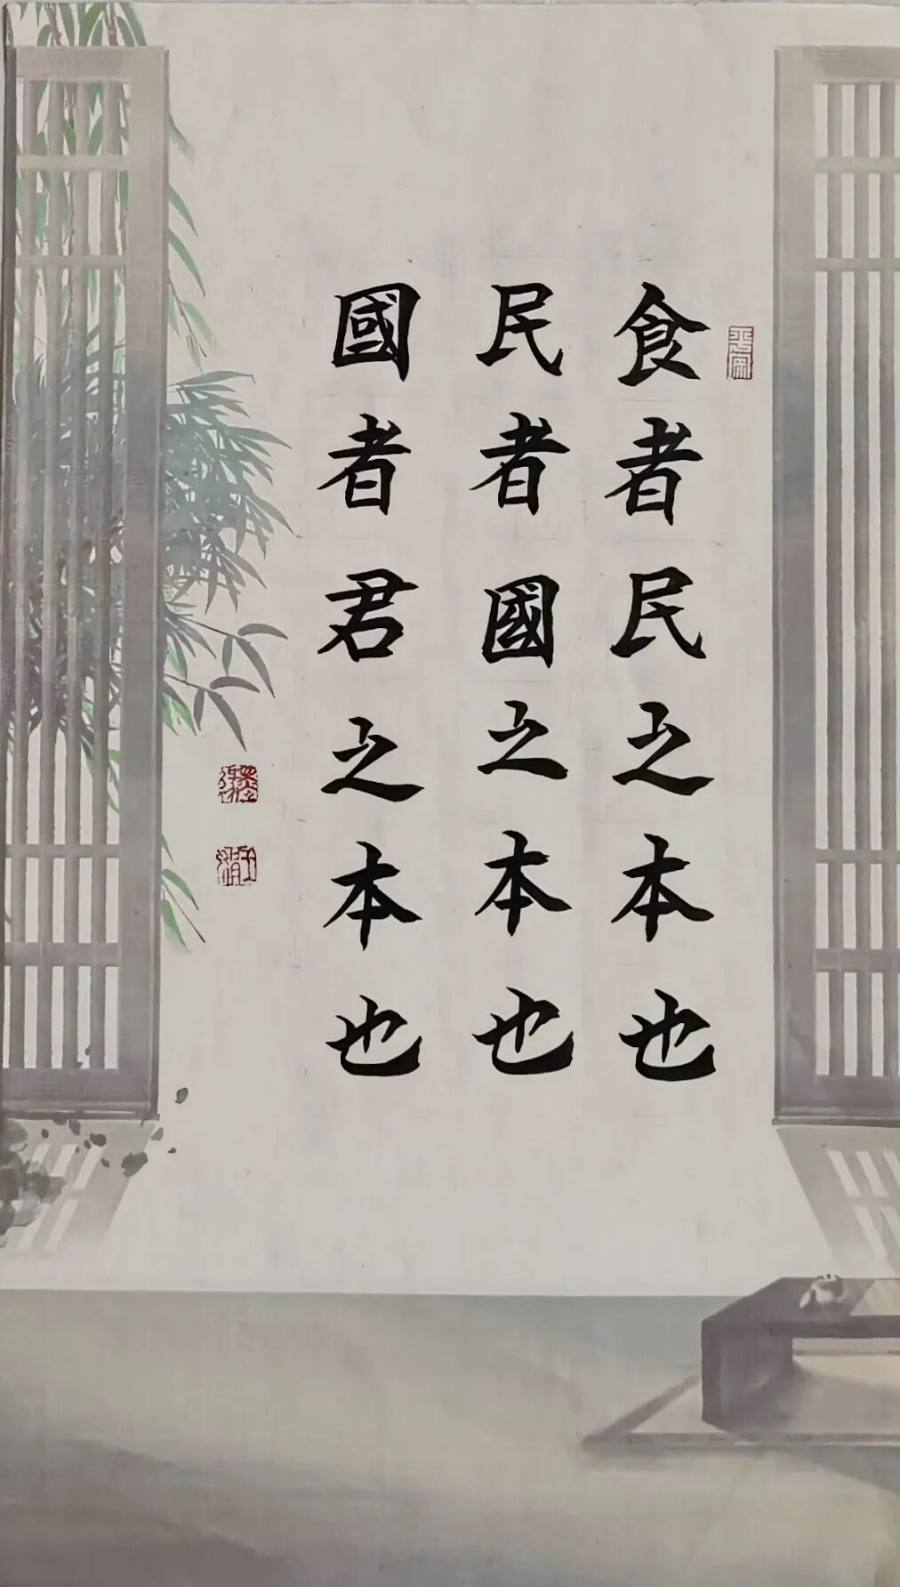 食者民之本也
民者國之本也
國者君之本也